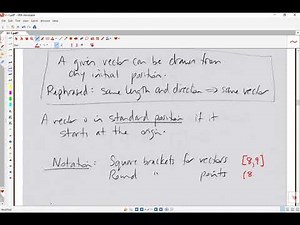 A given vector can be drawn from
any initial position.
Rephrased: same length and direction ⇒ same vector
A vector is in standard position if it
starts at the origin.
Notation: Square brackets for vectors [8,9]
Round " points (8